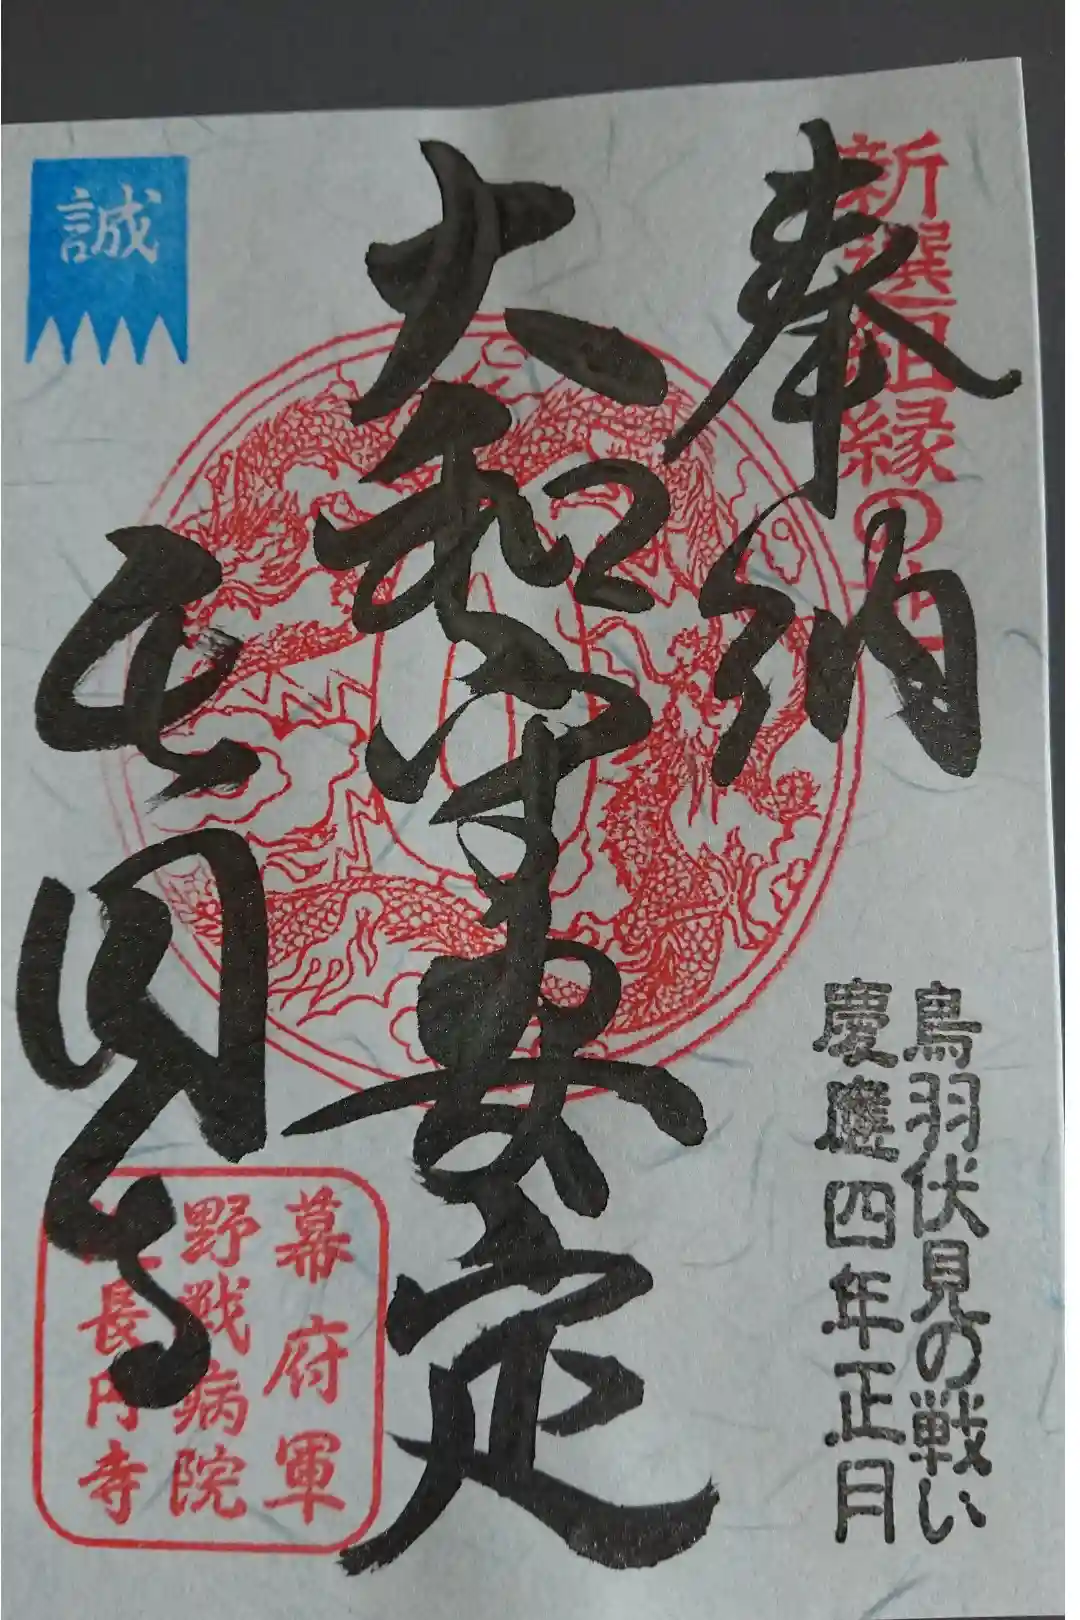 新撰組縁の地
奉納
鳥羽伏見の戦い
慶應四年正月
大和守安定
長円寺
誠
幕府軍
野戦病院
長円寺